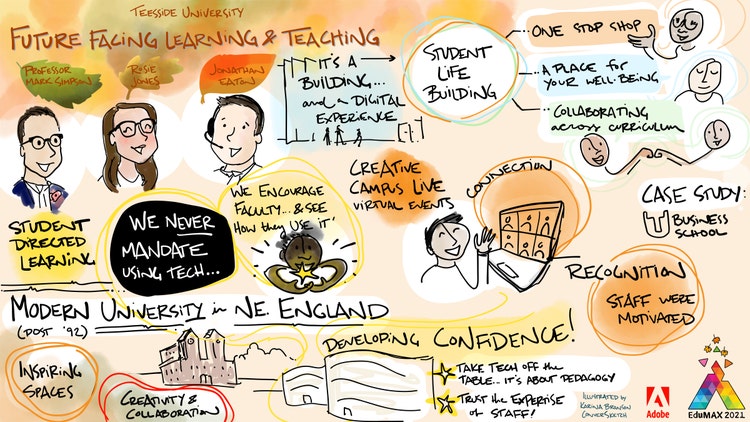 TEESSIDE UNIVERSITY
FUTURE FACING LEARNING & TEACHING
PROFESSOR
MARK SIMPSON
ROSIE
JONES
JONATHAN
EATON
IT'S A
BUILDING...
and a DIGITAL
EXPERIENCE
STUDENT
LIFE
BUILDING
ONE STOP SHOP
A PLACE for
YOUR WELL-BEING
COLLABORATING
across CURRICULUM
STUDENT
DIRECTED
LEARNING
WE NEVER
MANDATE
USING TECH...
WE ENCOURAGE
FACULTY...& SEE
HOW they USE IT'
CREATIVE
CAMPUS LIVE
VIRTUAL EVENTS
CONNECTION
CASE STUDY:
BUSINESS
SCHOOL
RECOGNITION
STAFF WERE
MOTIVATED
MODERN UNIVERSITY in NE. ENGLAND
(POST '92)
INSPIRING
SPACES
CREATIVITY &
COLLABORATION
DEVELOPING CONFIDENCE!
TAKE TECH OFF the
TABLE... IT'S ABOUT PEDAGOGY
TRUST the EXPERTISE
of STAFF!
ILLUSTRATED by
KARINA BRANSON
CONVERSKETCH
Adobe
EduMAX 2021